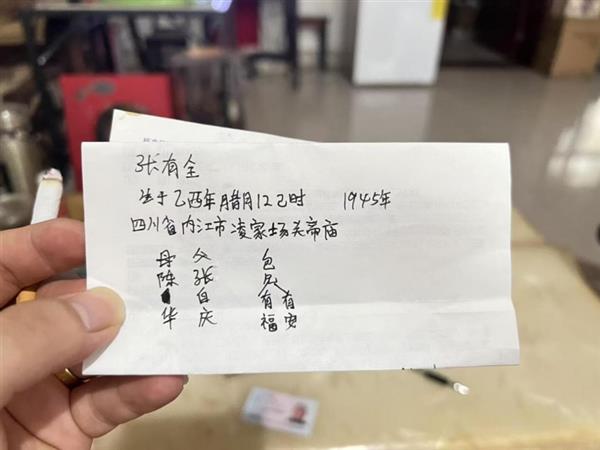 张有全
生于乙酉年腊月12己时 1945年
四川省内江市凌家场关帝庙
母 父 包
陈 张 兄
自 有 有
华 庆 福 安